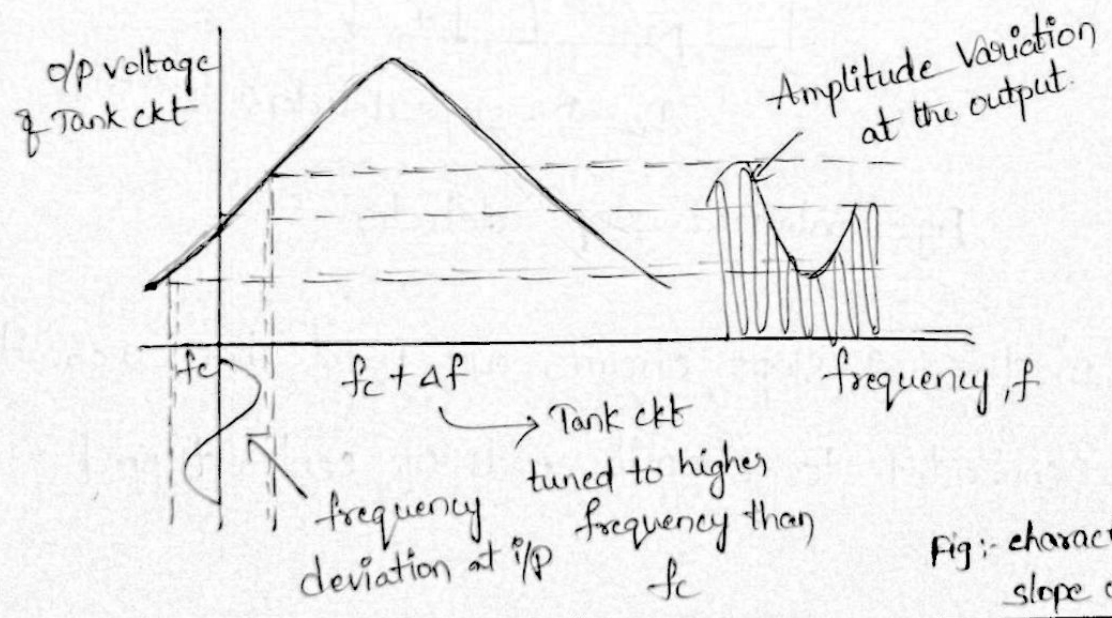 o/p voltage
of Tank ckt
Amplitude Variation
at the output.
fc
fc + Δf
frequency, f
Tank ckt
tuned to higher
frequency than
fc
frequency
deviation at i/p
Fig:-
slope